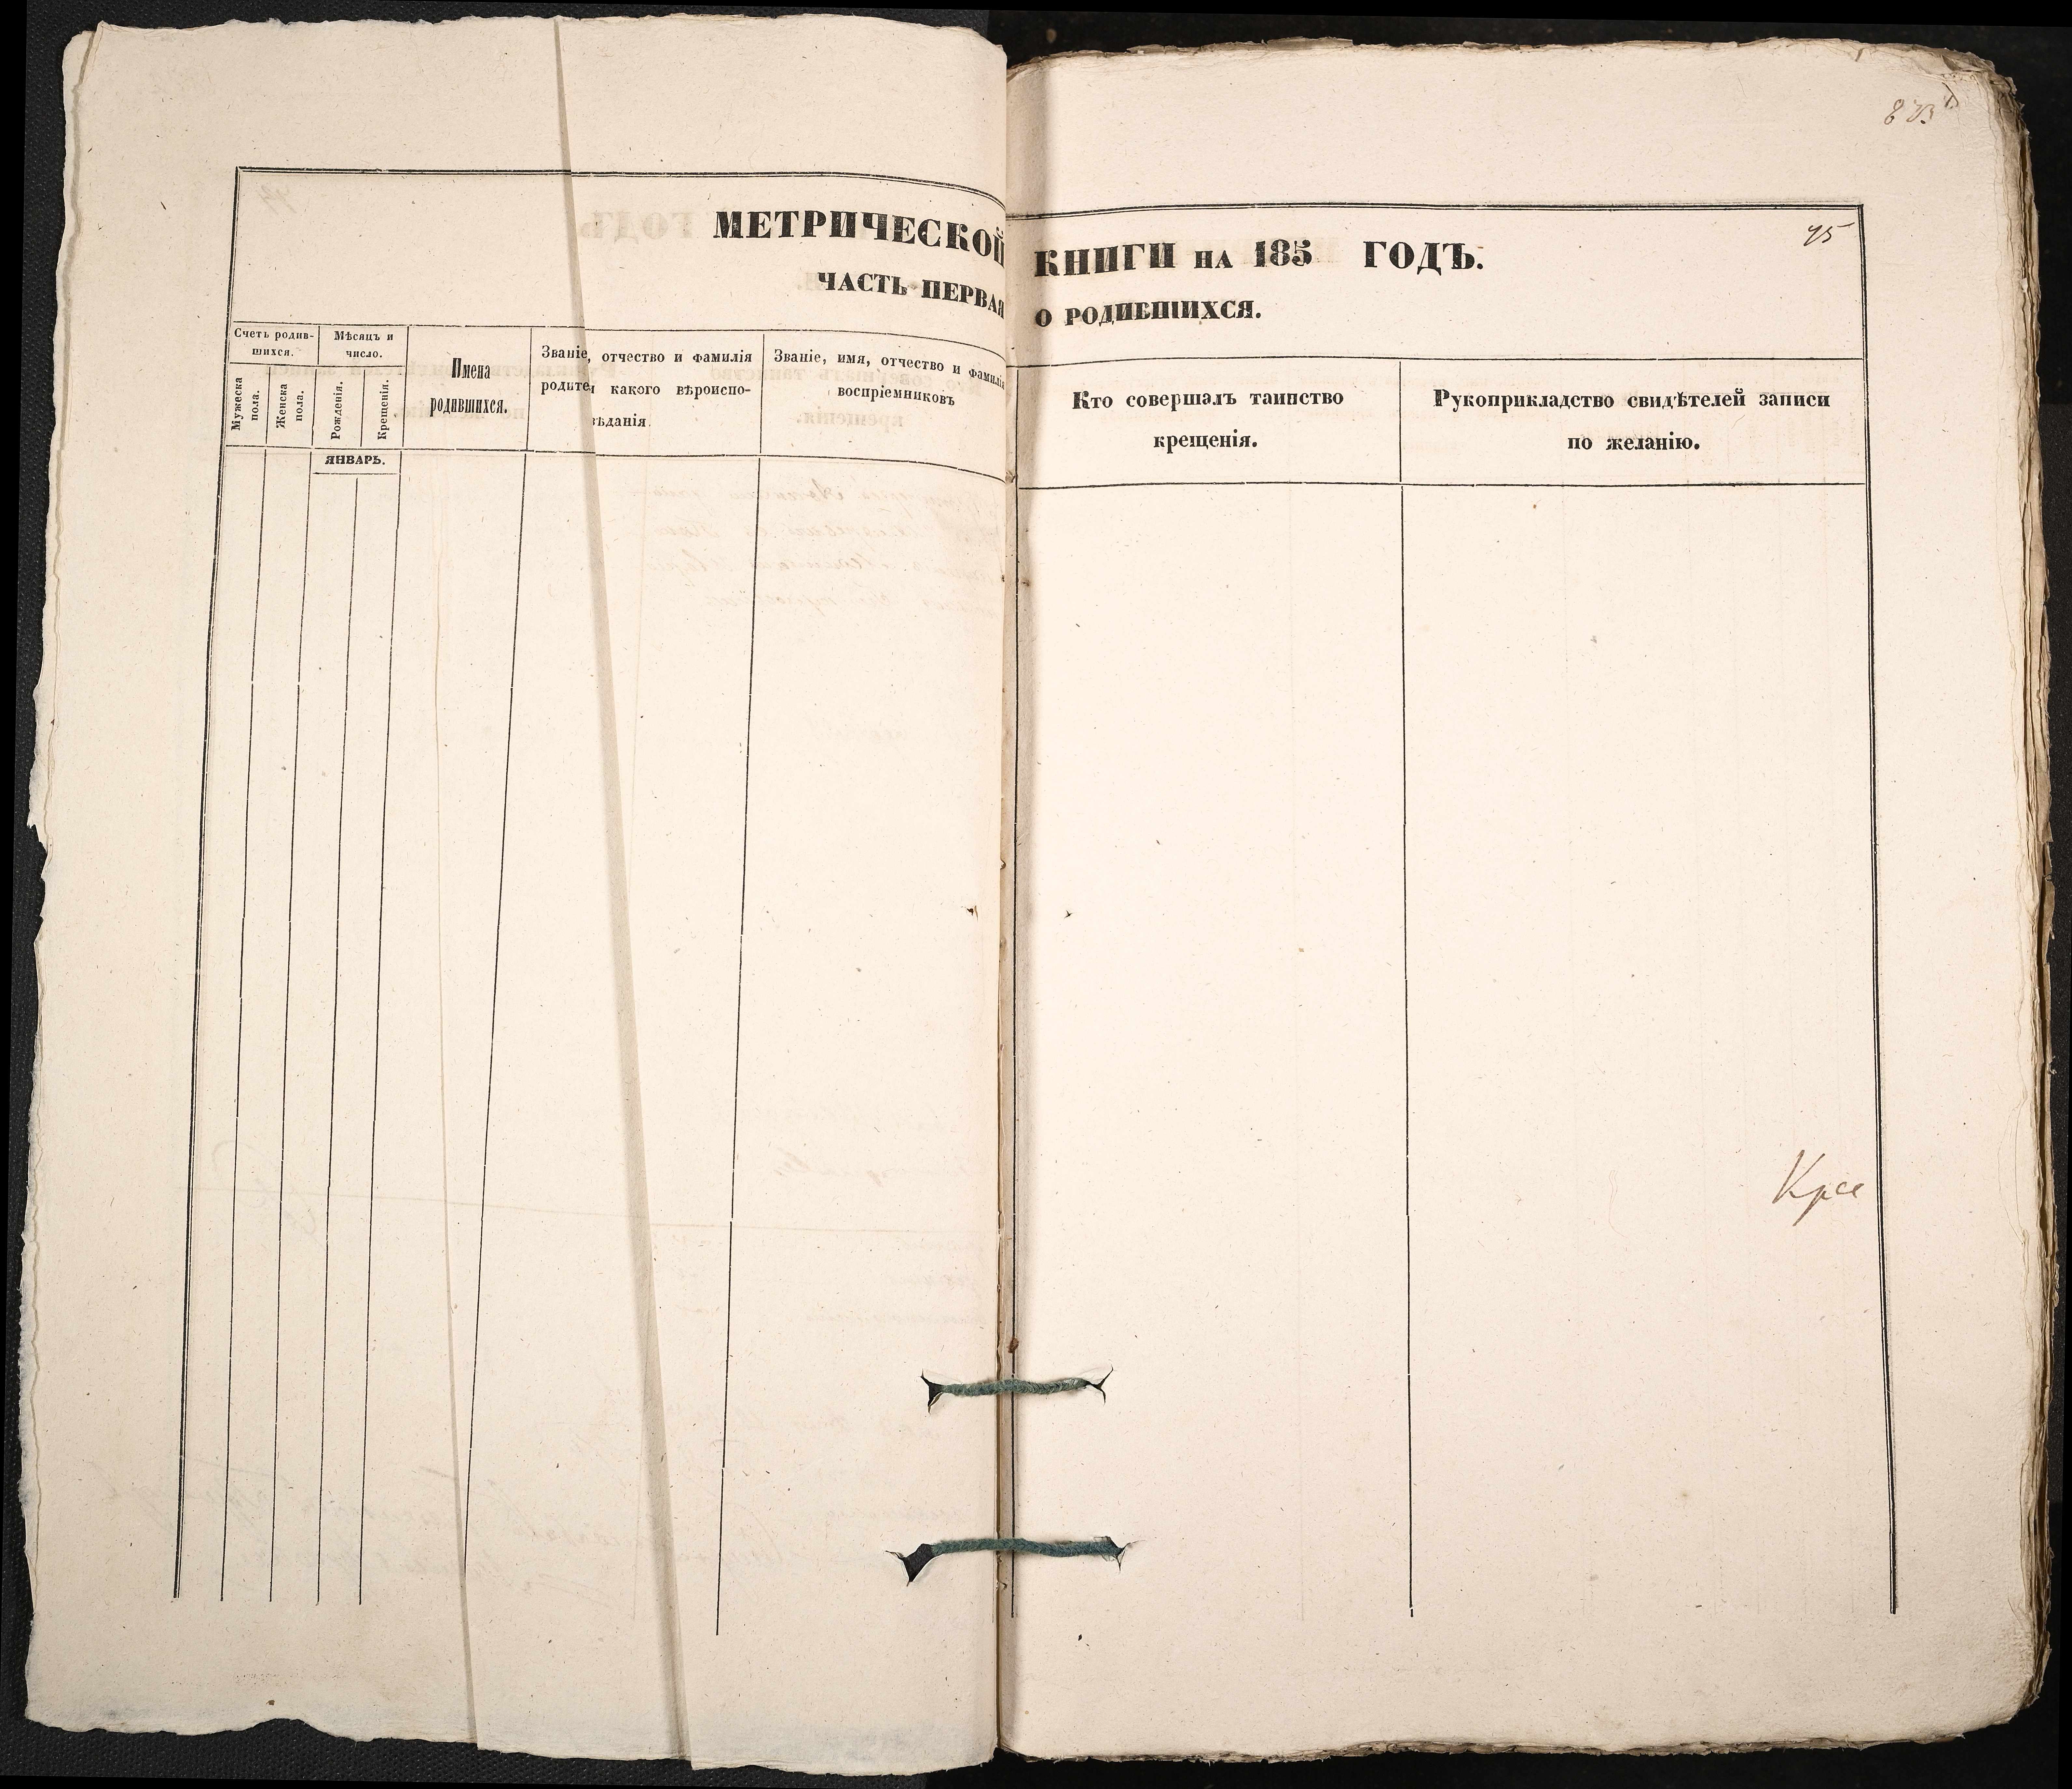 МЕТРИЧЕСКОЙ КНИГИ НА 185 ГОДЪ.
ЧАСТЬ ПЕРВАЯ О РОДИВШИХСЯ.
75
Счетъ родившихся.
Мужеска пола.
Женска пола.
Мѣсяцъ и число.
Рожденія.
Крещенія.
Имена
родившихся.
Званіе, отчество и фамилія
какого вѣроиспо-
вѣданія.
Званіе, имя, отчество и фамилія
воспріемниковъ
Кто совершалъ таинство
крещенія.
Рукоприкладство свидѣтелей записи
по желанію.
ЯНВАРЬ.